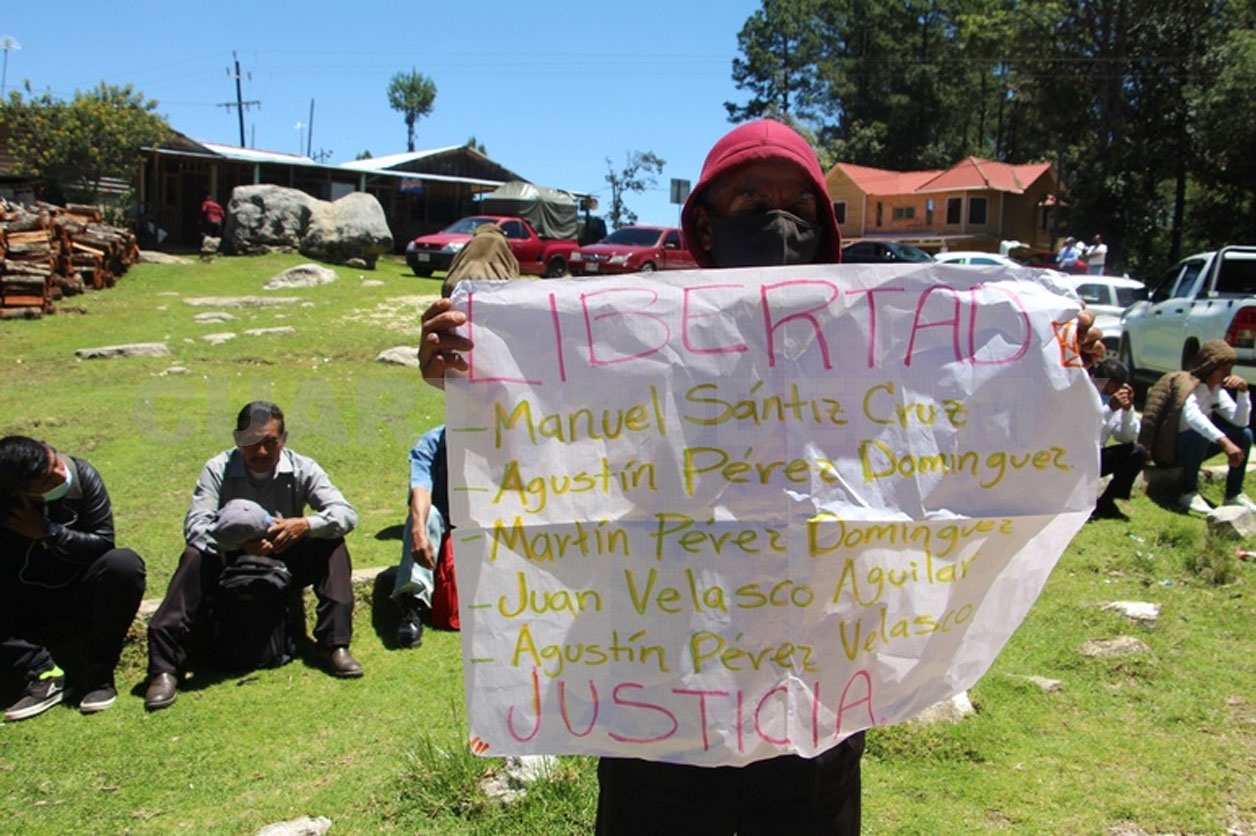 LIBERTAD
- Manuel Sántiz Cruz
- Agustín Pérez Domínguez
- Martín Pérez Domínguez
- Juan Velasco Aguilar
- Agustín Pérez Velasco.
JUSTICIA.